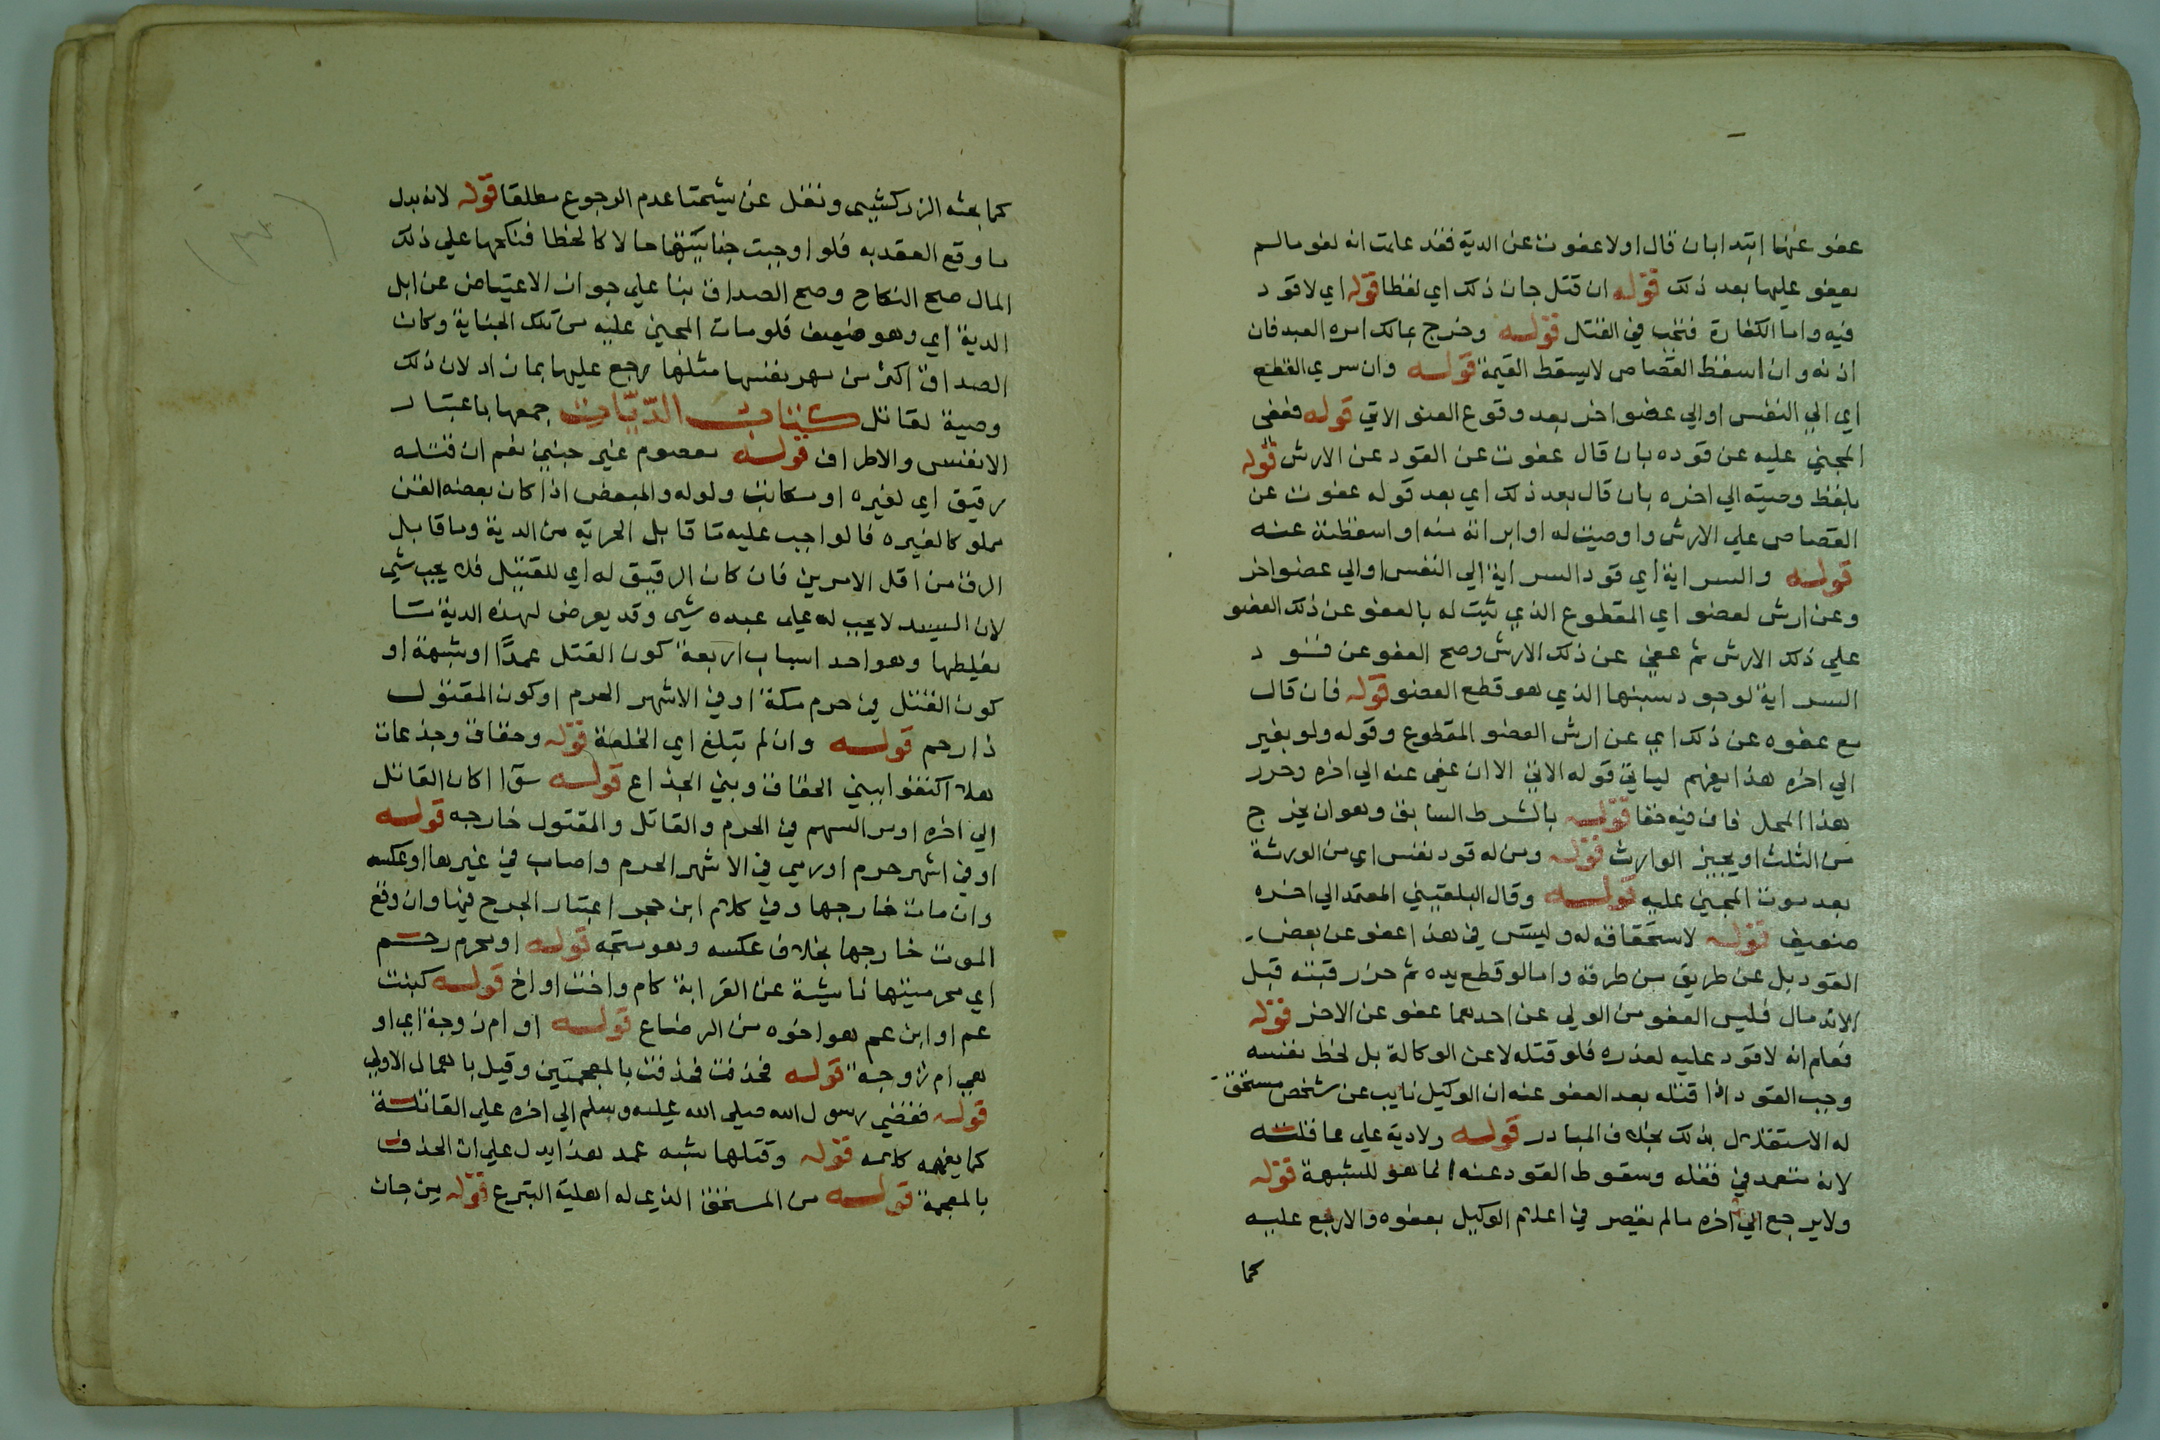 عفو عنها ابتدا بان قال اولا عفوت عن الدية فقد علمت انه لغو ما لم
يعفو عليها بعد ذلك قوله ان قتل جان ذلك اي لفظا قوله اي لا قود
فيه واما الكفارة فتجب في القتل قوله وخرج بمالك امره العبد فان
اذنه وان اسقط القصاص لا يسقط القيمة قوله وان سري القطع
اي الي النفس او الي عضو اخر بعد وقوع العفو الاتي قوله فعفى
المجني عليه عن قوده بان قال عفوت عن القود عن الارش قوله
بلفظ وصية الي اخره بان قال بعد ذلك اي بعد قوله عفوت عن
القصاص علي الارش واوصيت له او ابراته منه او اسقطته عنه
قوله والسراية اي قود السراية الي النفس او الي عضو اخر
وعن ارش لعضو اي المقطوع الذي ثبت له بالعفو عن ذلك العضو
علي ذلك الارش ثم عفي عن ذلك الارش وصح العفو عن قود
السراية لوجود سببها الذي هو قطع العضو قوله فان قال
مع عفوه عن ذلك اي عن ارش العضو المقطوع وقوله ولو بغير
الي اخره هذا يفهم لياتي قوله الاتي الا ان عفي عنه الي اخره وحرر
هذا المحل فان فيه خفا قوله بالشرط السابق وهو ان يخرج
من الثلث او يجيز الوارث قوله ومن له قود نفس اي من الورثة
بعد موت المجني عليه قوله وقال البلقيني المعتمد الي اخره
ضعيف قوله لاستحقاقه له وليس في هذا عفو عن بعض
القود بل عن طريق من طرقه واما لو قطع يده ثم حز رقبته قبل
الاندمال فليس العفو من الولي عن احدهما عفو عن الاخر قوله
فعلم انه لا قود عليه لعذره فلو قتله لا عن الوكالة بل لحظ نفسه
وجب القود اذا قتله بعد العفو عنه ان الوكيل نايب عن شخص مستحق
له الاستقلال بذلك بخلاف المبادر قوله ولادية علي عاقلته
لانه متعمد في فعله وسقوط القود عنه انما هو للشبهة قوله
ولا يرجع الي اخره ما لم يقصر في اعلام الوكيل بعفوه والا رجع عليه
كما
كما بحثه الزركشي ونقل عن شيخنا عدم الرجوع مطلقا قوله لانه بدل
ما وقع العقد به فلو اوجبت جنايتها مالا كالخطا فنكحها علي ذلك
المال صح النكاح وصح الصداق بنا علي جواز الاعتياض عن ابل
الدية اي وهو ضعيف فلو مات المجني عليه من تلك الجناية وكان
الصداق اكثر من مهر نفسها مثلها رجع عليها بما زاد لان ذلك
وصية لقاتل كتاب الديات جمعها باعتبار
الانفس والاطراف قوله معصوم غير جنين نعم ان قتله
رقيق اي لغيره او مكاتب ولو له والمبعض اذا كان بعضه القن
مملوكا لغيره فالواجب عليه ما قابل الحرية من الدية وما قابل
الرق من اقل الامرين فان كان الرقيق له اي للقتيل فلا يجب شي
لان السيد لا يجب له علي عبده شي وقد يعرض لهذه الدية ما
يغلطها وهو احد اسباب اربعة كون القتل عمدا او شبهة او
كون القتل في حرم مكة او في الاشهر الحرم او كون المقتول
ذا رحم قوله وان لم تبلغ اي الخلفة قوله وحقاق وجذعات
هلا اكتفوا ببني الحقاق وبني الجذاع قوله سوا كان القاتل
الي اخره او مر السهم في الحرم والقاتل والمقتول خارجه قوله
او في اشهر حرم او رمي في الاشهر الحرم واصاب في غيرها او عكسه
وان مات خارجها وفي كلام ابن حجر اعتبار الجرح فيها وان وقع
الموت خارجها بخلاف عكسه وهو متجه قوله او محرم رحم
اي محرميتها ناشية عن القرابة كام واخت او اخ قوله كبنت
عم او ابن عم هو اخوه من الرضاع قوله او ام زوجة اي او
هي ام زوجه قوله فحذفت فخذفت بالمعجمتين وقيل باهمال الاولي
قوله فقضي رسول الله صلي الله عليه وسلم الي اخره علي القاتلة
كما يفهمه كلامه قوله وقتلها شبه عمد هذا يدل علي ان الحذف
بالمعجمة قوله من المستحق الذي له اهلية التبرع قوله من جان